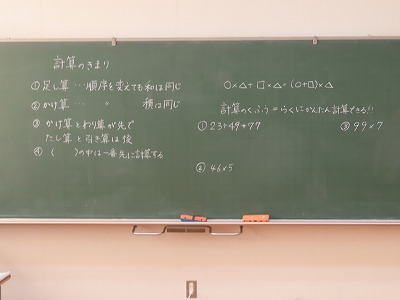 計算のきまり
①足し算…順序を変えても和は同じ
②かけ算…〃 積は同じ
③かけ算とわり算が先で
たし算と引き算は後
④( )の中は一番先に計算する
○×△+□×△=(○+□)×△
計算のくふう=らくにかんたん計算できる!!
①23+49+77
③99×7
②46×5